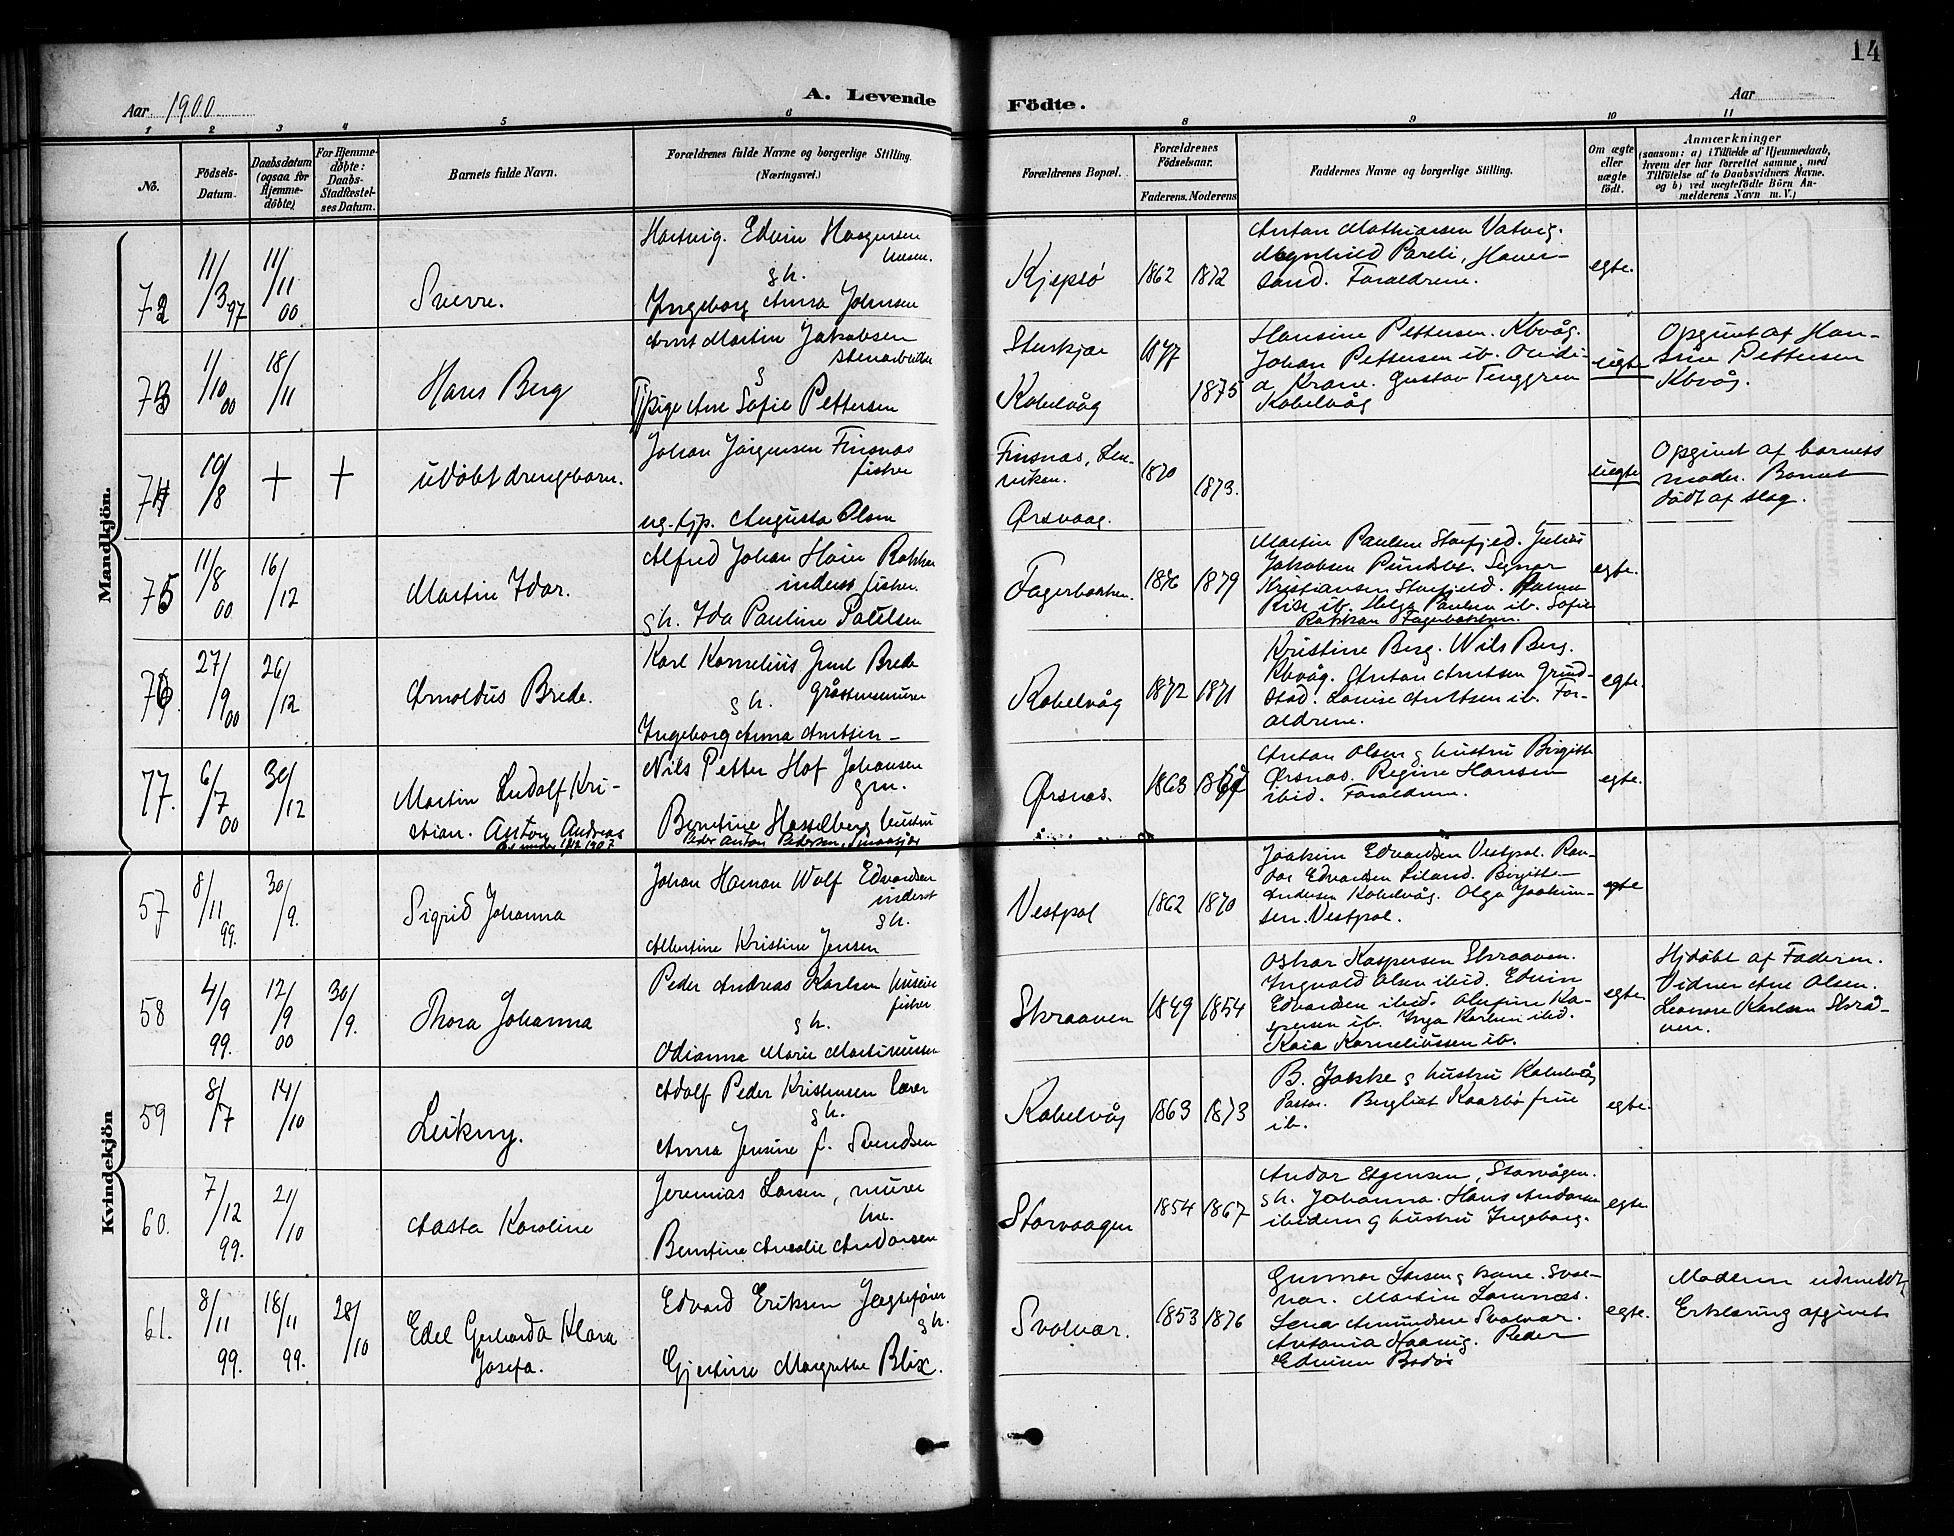 14
Aar 1900
A. Levende
Födte.
Aar
1 2 3 4 5 6 8 9 10 11
No.
Födsels-
Datum.
Daabsdatum
(ogsaa for
Hjemme-
döbte)
For Hjemme-
döbte:
Daabs-
Stadfæstel-
ses Datum.
Barnets fulde Navn.
Forældrenes fulde Navne og borgerlige Stilling.
(Næringsvei.)
Forældrenes Bopæl.
Forældrenes
Födselsaar.
Faderens. Moderens
Faddernes Navne og borgerlige Stilling.
Om ægte
eller
uægte
födt.
Anmærkninger
(saasom: a) i Tilfælde af Hjemmedaab,
hvem der har forrettet samme, med
Tilföielse af to Daabsvidners Navne.
og b) ved uegtefödte Börn An-
melderens Navn m. V.)
Mandkjön.
72
11/3 97
11/11 00
Sverre.
Hartvig. Edvin Haagensen
g h.
Ingeborg Anna Johnsen
Kjepsö
1862
1872
Anton Mathiasen Vatvig.
Magnhild Pareli,
sand. Forældrene.
egte.
73
1/10 00
18/11
Hans Berg
Arnt Martin Jakobsen
stenarbeider
g
Tjpige Ane Sofie Pettersen
Stenkjær
Kabelvåg
1877
1875
Hansine Pettersen. Kbvåg.
Johan Pettersen ib. Ovidi-
a Krane. Gustav Tenggren
Kabelvåg
uegte
Opgivet af Han-
sine Pettersen
Kbvåg.
74
19/8
+
+
udöbt drengebarn.
Johan Jörgensen Finsnæs
fisker
ug. tjp. Augusta Olsen
Finsnæs, Len-
viken.
Ørsvaag.
1870
1873.
uegte
Opgivet af barnets
moder. Barnet
födt af slag.
75
11/8 00
16/12
Martin Idar.
Alfred Johan Hain Rakkan
inderst fisker.
g h. Ida Pauline Paulsen
Fagerbakken.
1876
1879
Martin Paulsen Storfjeld. Julius
Jakobsen Pundslet. Signar
Kristiansen Storfjeld.
Rise ib. Helga Paulsen ib. Sofie
Rakkan Fagerbakken.
egte.
76
27/9 00
26/12
Arnoldus Brede.
Karl Kornelius Juul Brede
gråstensmurer
g h.
Ingeborg Anna Arntsen -
Kabelvåg
1872
1871
Kristine Berg. Nils Berg.
Kbvåg. Anton Arntsen Grund-
stad. Louise Arntsen ib. For-
ældrene.
egte.
77.
6/7 00
30/12
Martin Ludolf Kri-
stian. Anton Andreas
Nils Petter Hof Johansen
gm.
Berntine Hasselberg hustru
Peder Anton Pedersen,
Ørsnæs.
1863
Anton Olsen g hustru Birgitte
Ørsnæs. Regine Hansen
ibid. Forældrene.
egte.
Kvindekjön
57
8/11 99.
30/9.
Sigrid Johanna
Johan Haman Wolf Edvardsen
inderst
g h.
Albertine Kristine Jensen
Vestpol
1862
1870
Joakim Edvardsen Vestpol. Ran-
dor Edvardsen Liland. Birgitte
Andersen Kabelvåg. Olga Joakim-
sen. Vestpol.
egte
58
4/9 99.
12/9 00
30/9.
Thora Johanna
Peder Andreas Karlsen huseier
fisker
g h.
Odianna Marie Martinussen
Skraaven
1849
1854
Oskar Kaspersen Skraaven.
Ingvald Olsen ibid. Edvin
Edvardsen ibid. Olufine Ka-
spersen ib. Inga Karlsen ibid.
Kaia Korneliussen ib.
egte
Hjdöbt af Faderen.
Vidner Ane Olsen.
Leonore Karlsen Skrå-
ven.
59
8/7
14/10
Leikny.
Adolf Peder Kristensen lærer
g h.
Anna Jensine f. Svendsen
Kabelvåg
1863
1873
B. Jakske g hustru Kabelvåg
Pastor. Bergliot Kaarbö frue
ib.
egte.
60.
7/12 99.
21/10
Aasta Karoline
Jeremias Larsen, murer
Berntine Amalie Andorsen
Storvaagen
1854
1867
Andor Espensen, Storvågen.
g h. Johanna. Hans Andorsen
ibidem g hustru Ingeborg.
egte.
61.
8/11 99.
18/11 99.
28/10
Edel Gerharda Klara
Josefa.
Edvard Eriksen Jægtefører
g h.
Gjertine Margrethe Blix.
Svolvær.
1853
1876
Gunnar Larsen g kone. Svol-
vær. Martin Lomnæs.
Lena Amundsen Svolvær.
Antonia Haavig. Peder
Edvinsen Bodö
egte.
Moderen udmeldt,
Erklæring afgivet